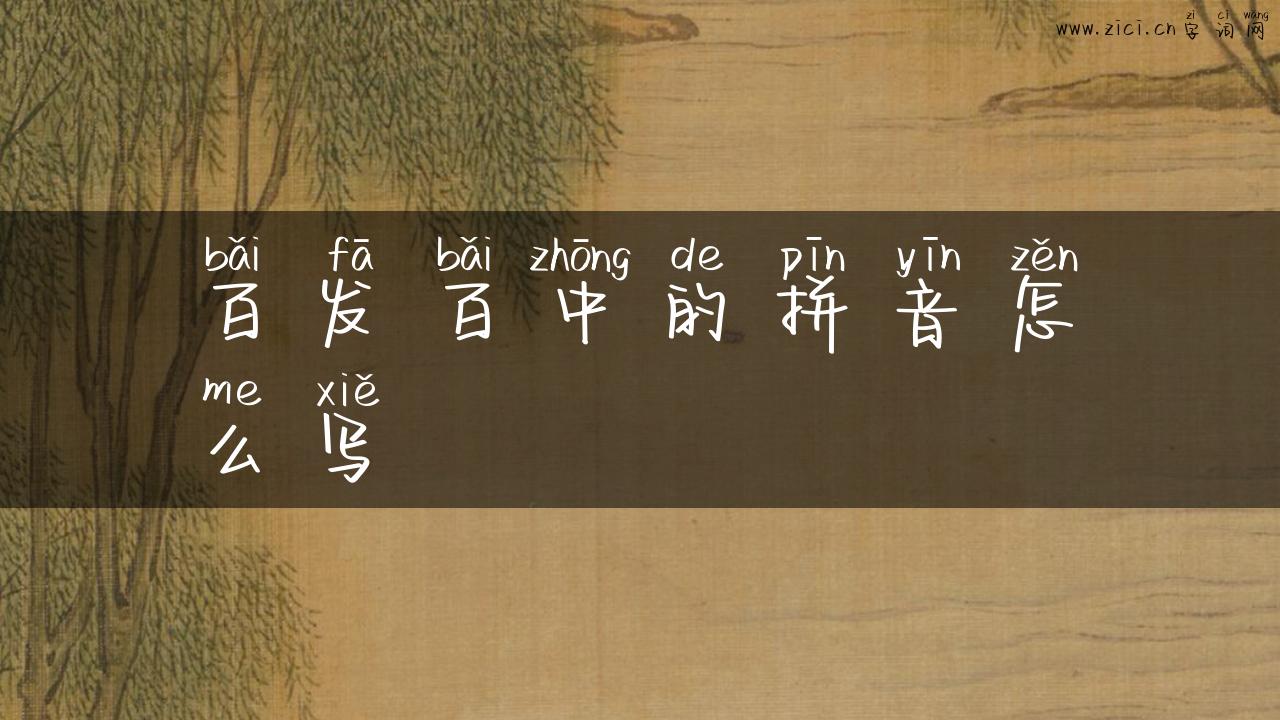 zì cí wǎng
www.zici.cn 字词网
bǎi fā bǎi zhōng de pīn yīn zěn
百发百中的拼音怎
me xiě
么写